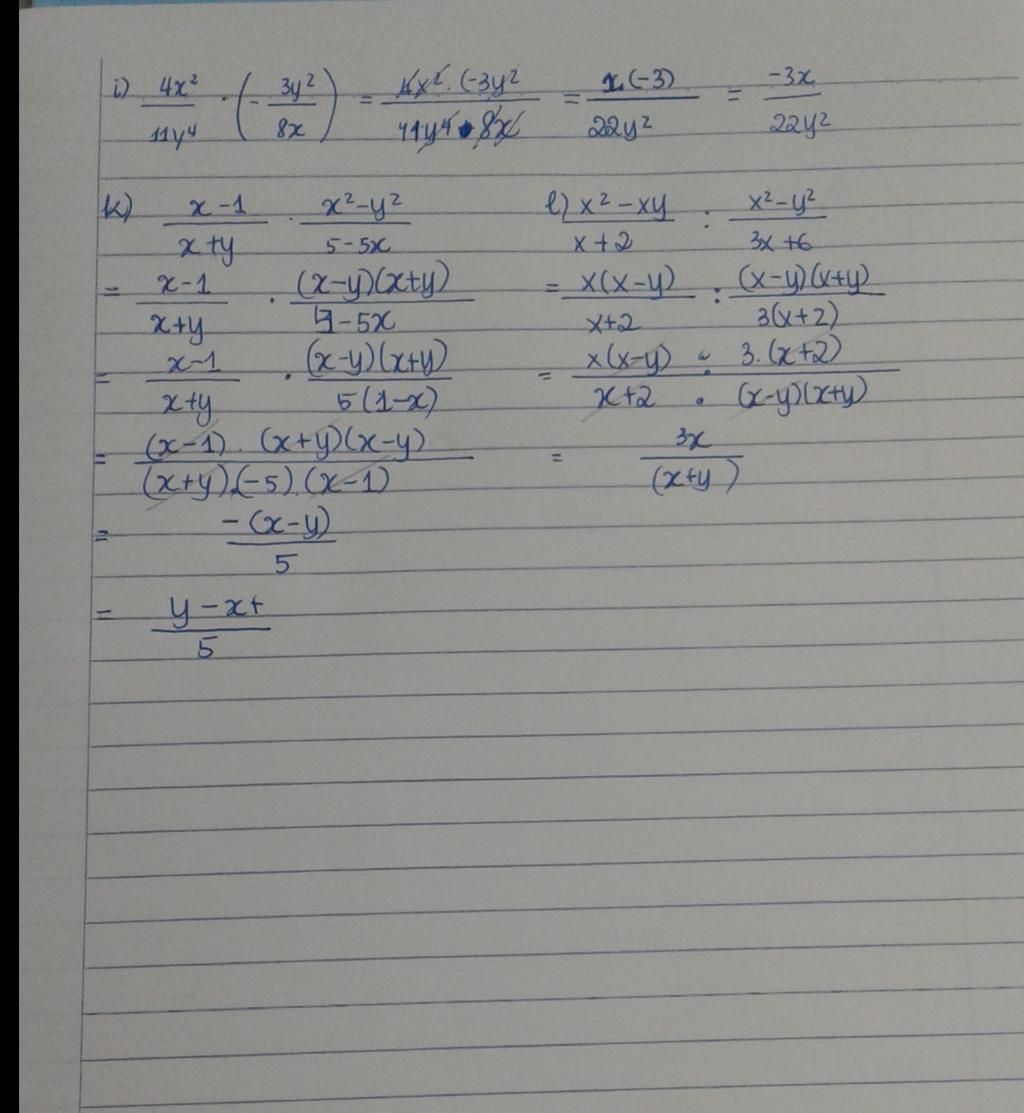 i) 4x²/11y⁴ · (- 3y²/8x) = 4x² · (-3y²/11y⁴ · 8x = x(-3)/22y² = -3x/22y²
k) x-1/x+y · x²-y²/5-5x
= x-1/x+y · (x-y)(x+y)/5-5x
= x-1/x+y · (x-y)(x+y)/5(1-x)
= (x-1) · (x+y)(x-y)/(x+y).(-5).(x-1)
= -(x-y)/5
= y-x+/5
l) x²-xy/x+2 : x²-y²/3x+6
= x(x-y)/x+2 : (x-y)(x+y)/3(x+2)
= x(x-y) : 3.(x+2)/x+2 . (x-y)(x+y)
= 3x/(x+y)